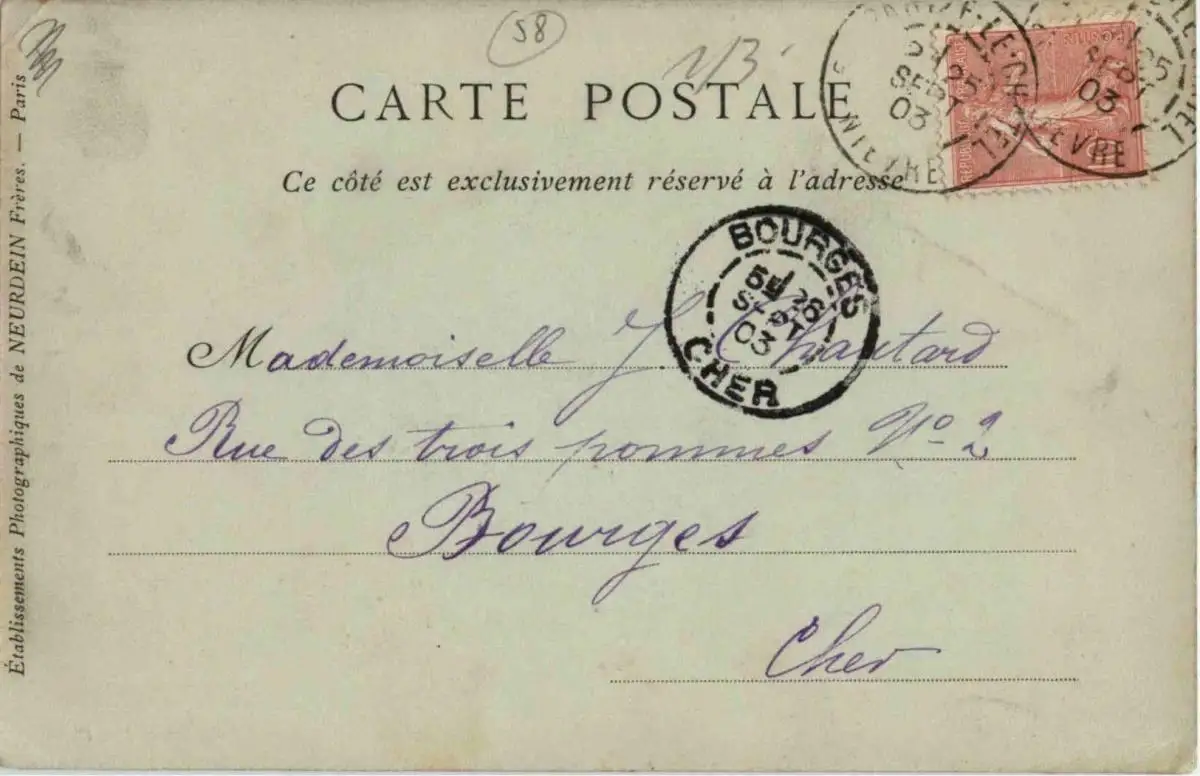 58
CARTE POSTALE
Ce côté est exclusivement réservé à l'adresse
NIEVRE
25
SEPT
03
25
SEPT
03
BOURGES
26
SEPT
03
CHER
Mademoiselle J Chautard
Rue des trois pommes No 2
Bourges
Cher
Établissements Photographiques de NEURDEIN Frères. — Paris